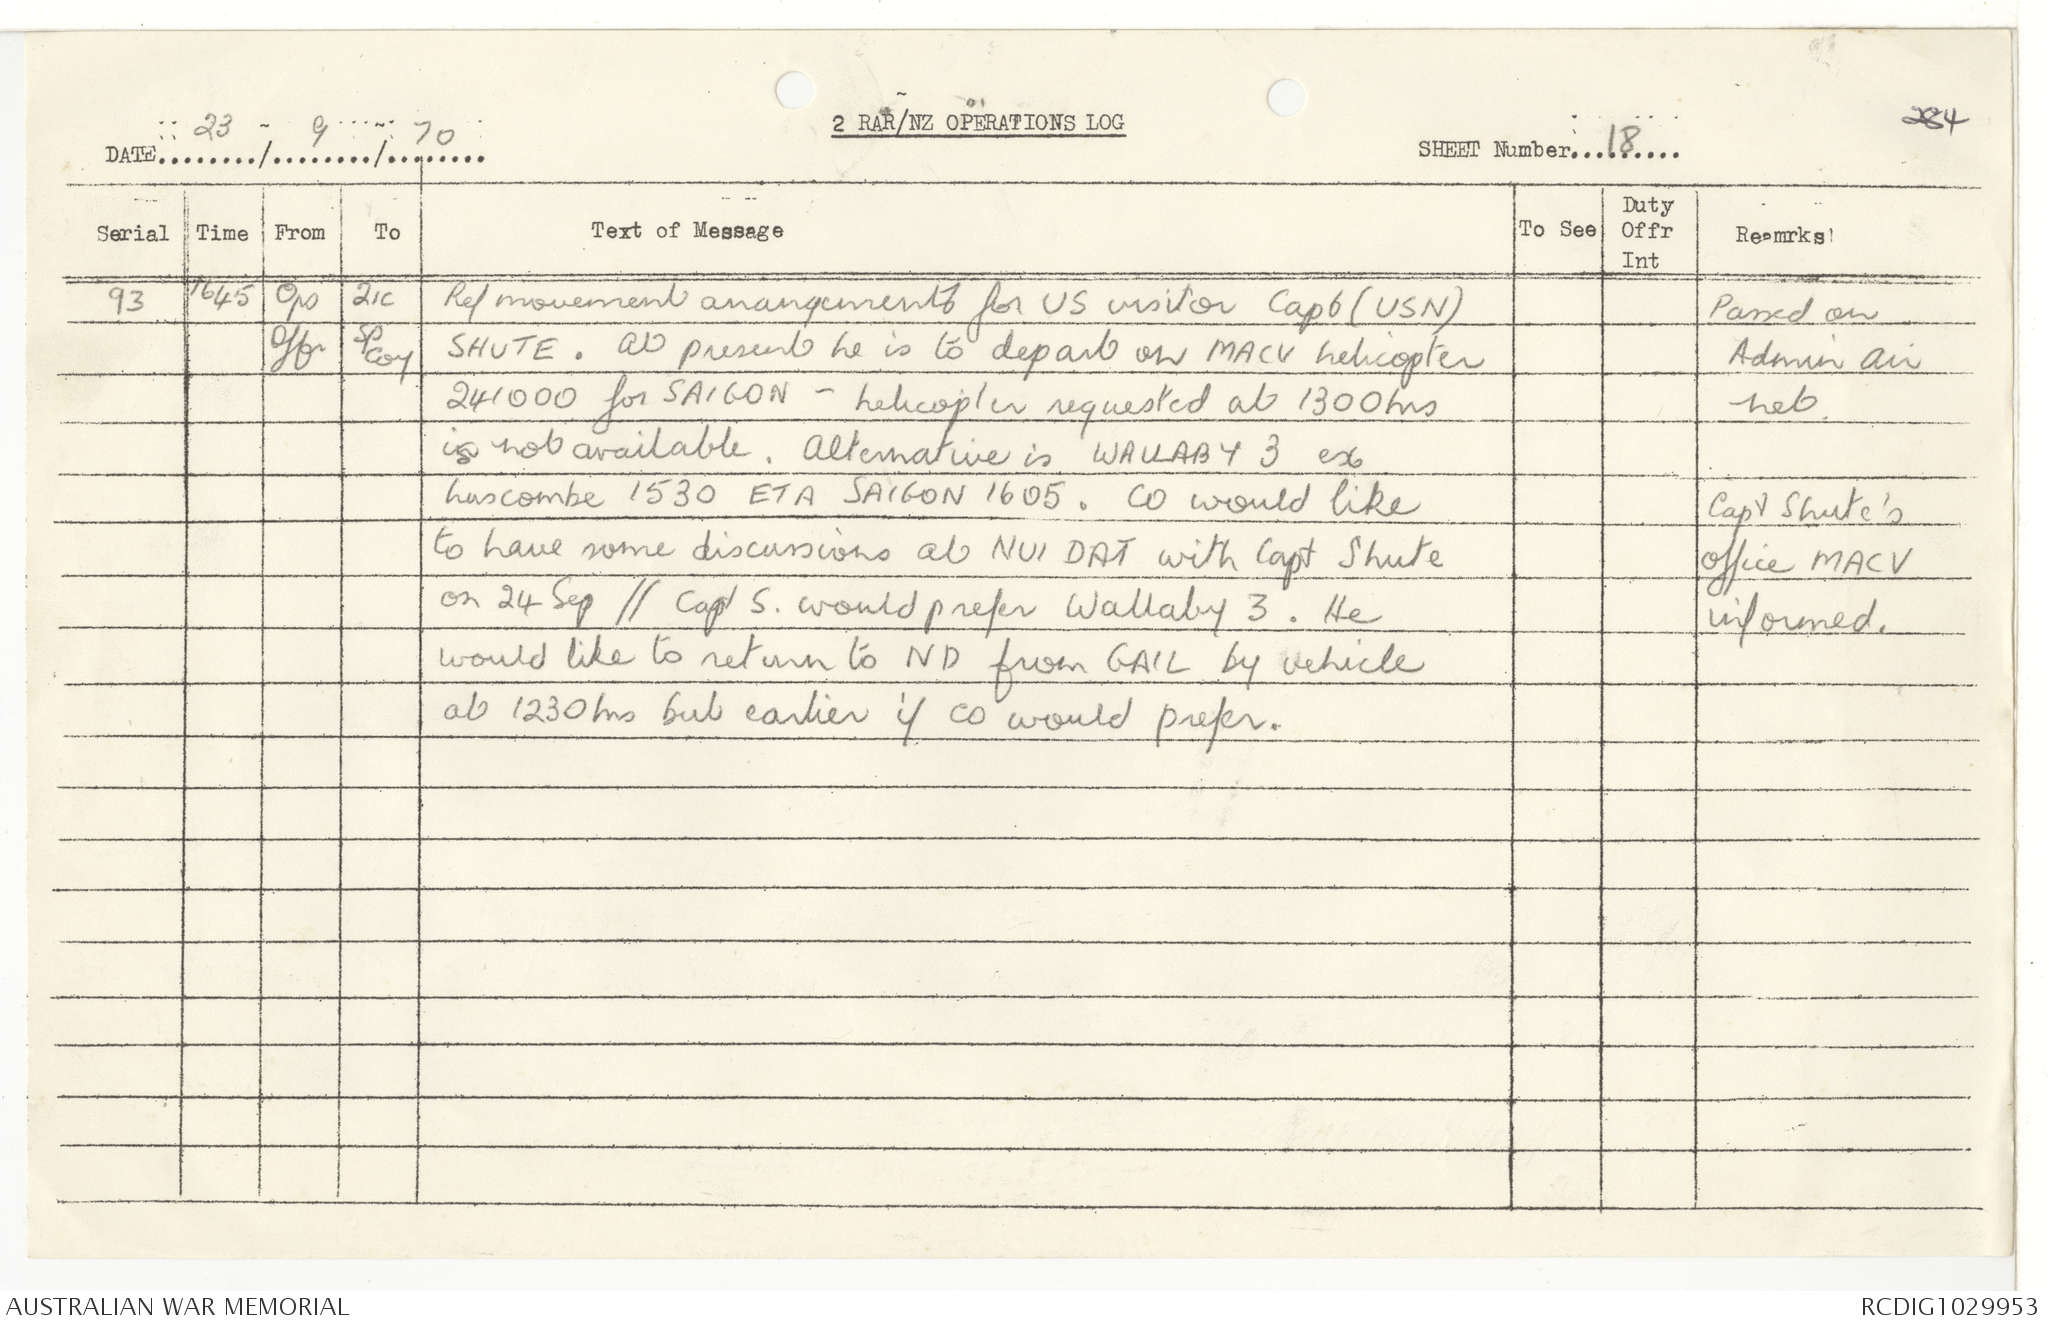 284
DATE 23 / 9 / 70
2 RAR/NZ OPERATIONS LOG
SHEET Number 18
Serial Time From To Text of Message To See Duty Offr Int Remrks
93 1645 Ops 2IC Ref movement arrangements for US visitor Capt (USN) Passed on
Offr Sp Coy SHUTE. At present he is to depart on MACV helicopter Admin Air
241000 for SAIGON - helicopter requested at 1300hrs net.
is not available. Alternative is WALLABY 3 ex
Luscombe 1530 ETA SAIGON 1605. CO would like Capt Shute's
to have some discussions at NUI DAT with Capt Shute office MACV
on 24 Sep // Capt S. would prefer Wallaby 3. He informed.
would like to return to ND from GAIL by vehicle
at 1230hrs but earlier if CO would prefer.
AUSTRALIAN WAR MEMORIAL
RCDIG1029953